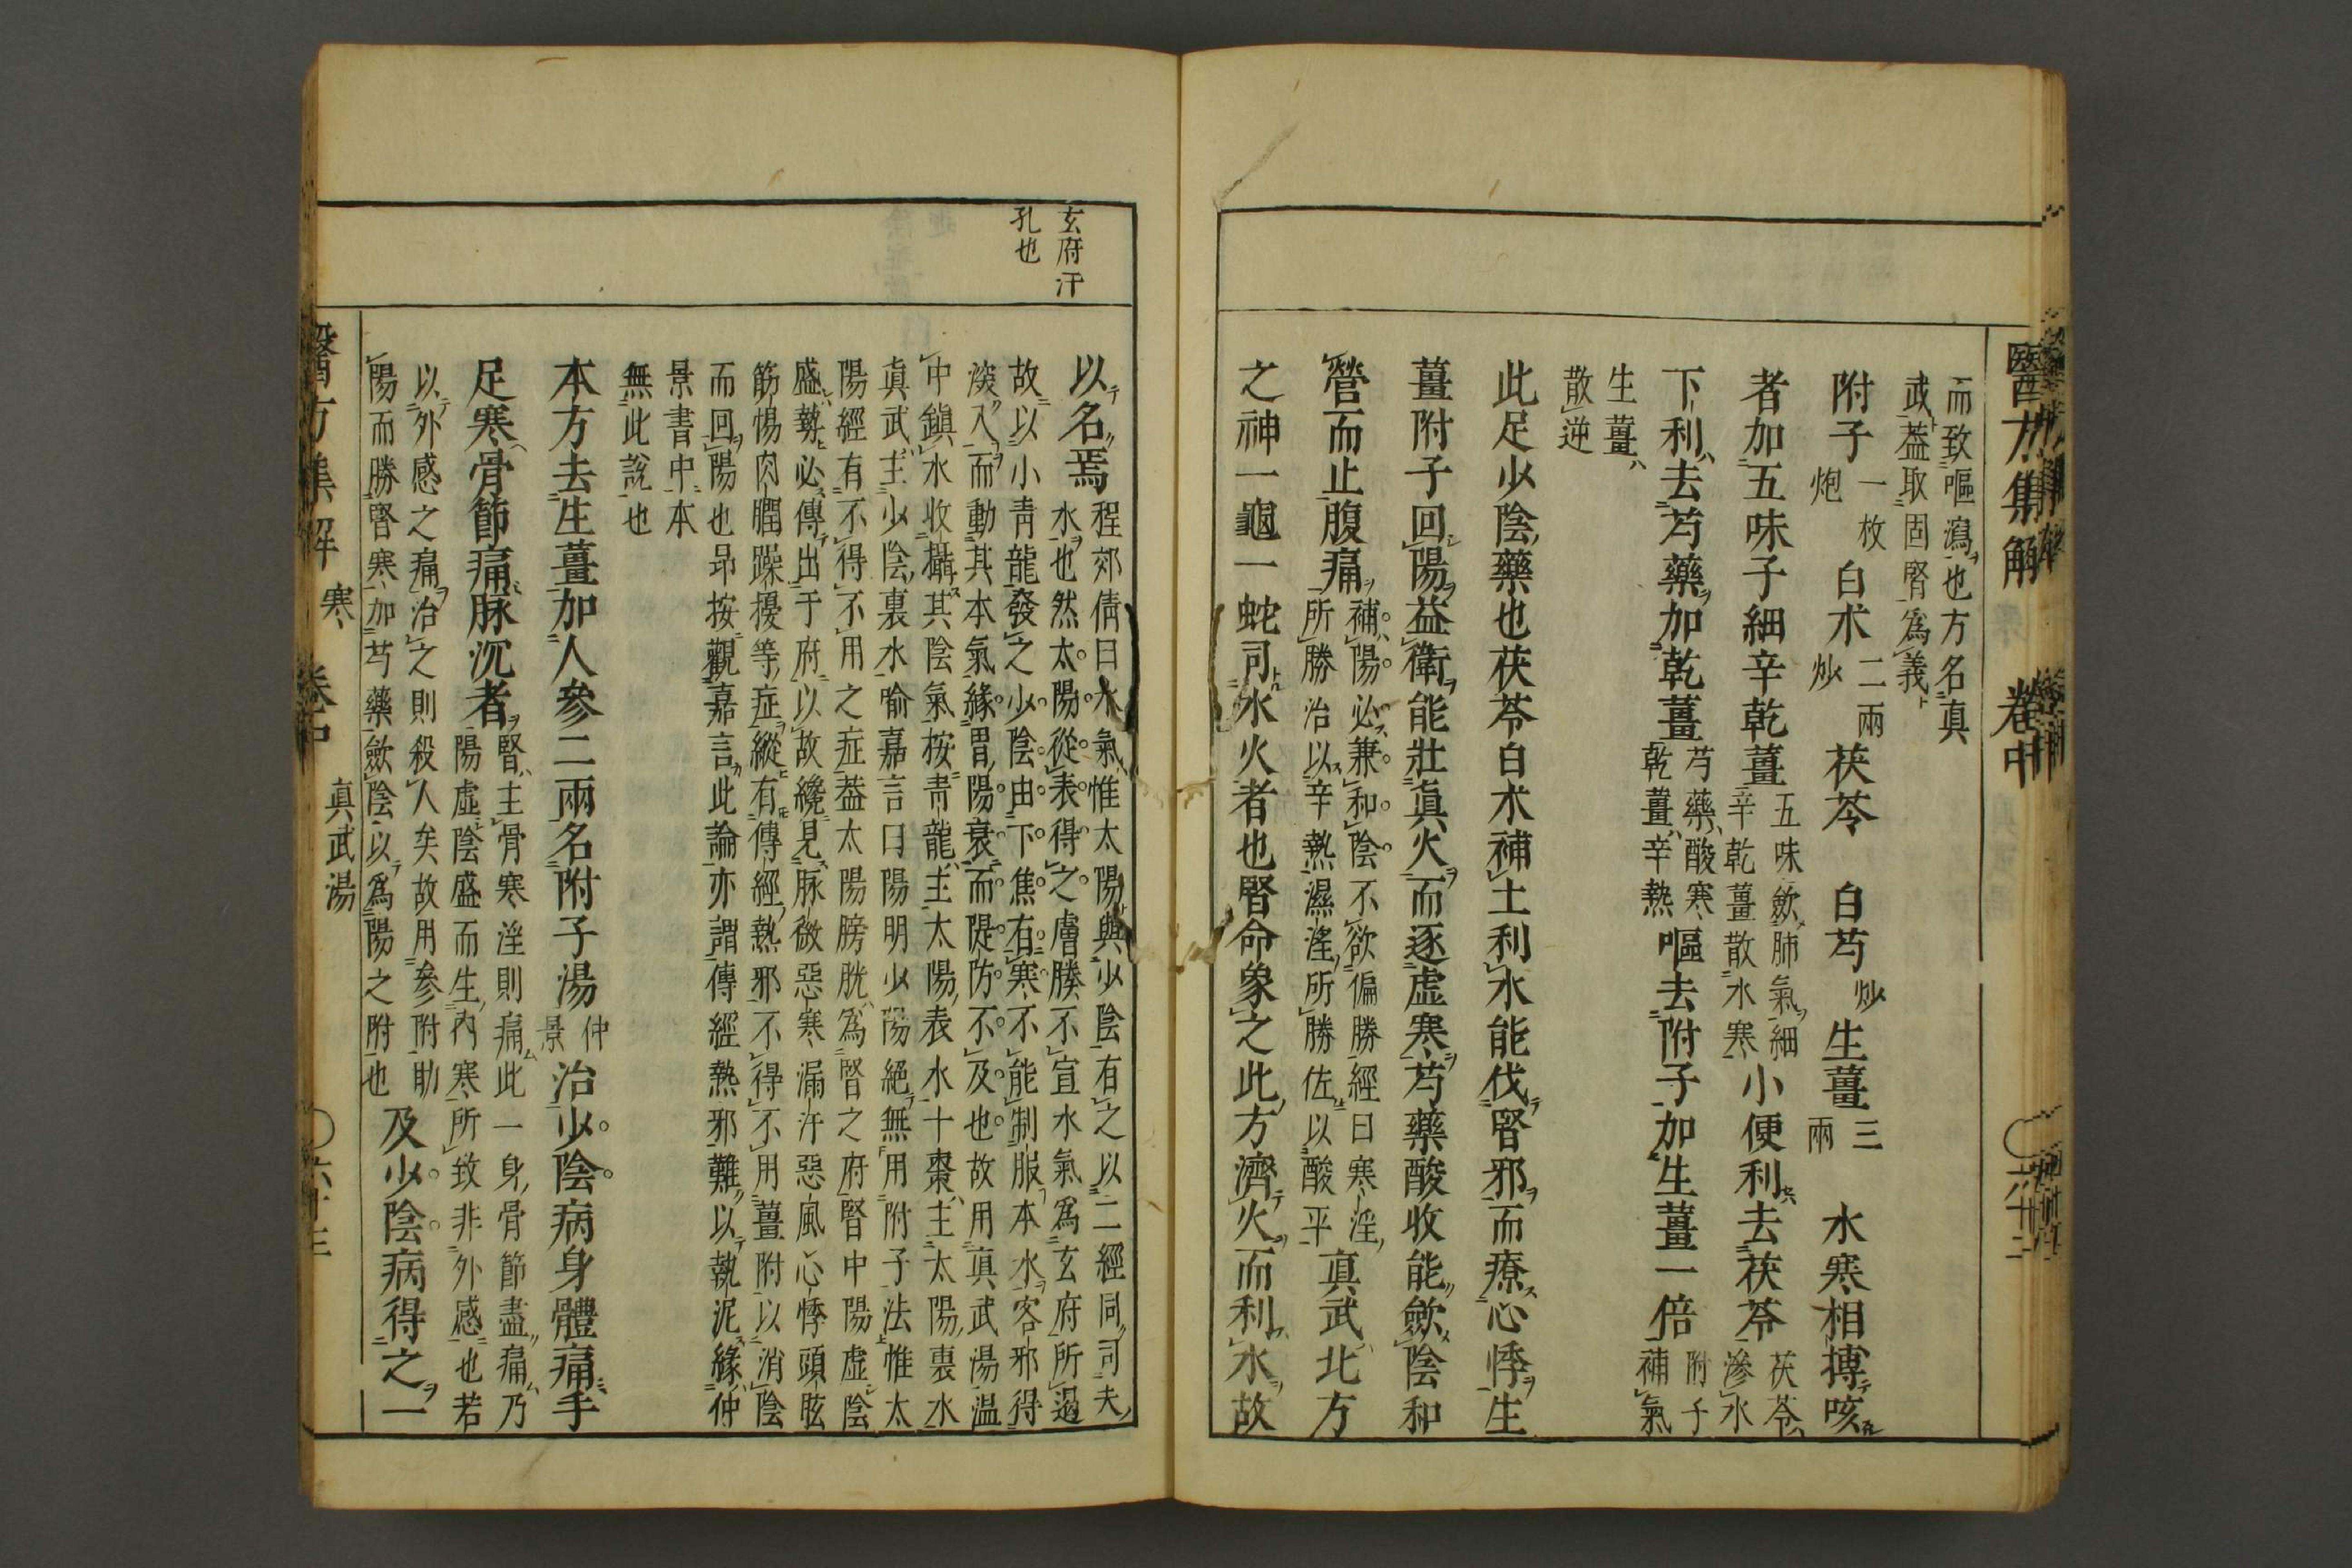 醫方集解 卷中 〇六十二
而致嘔瀉也方名真
武蓋取固腎爲義
附子一枚炮 白朮二兩炒 茯苓 白芍炒 生薑三兩 水寒相搏咳
者加五味子細辛乾薑五味歛肺氣細辛乾薑散水寒小便利去茯苓茯苓滲水
下利去芍藥加乾薑芍藥酸寒乾薑辛熱嘔去附子加生薑一倍附子補氣
生薑
散逆
此足少陰藥也茯苓白朮補土利水能伐腎邪而療心悸生
薑附子回陽益衛能壯真火而逐虛寒芍藥酸收能歛陰和
營而止腹痛補陽必兼和陰不欲偏勝經曰寒淫所勝治以辛熱濕淫所勝佐以酸平真武北方
之神一龜一蛇司水火者也腎命象之此方濟火而利水故
玄府汗
孔也
以名焉程郊倩曰水氣惟太陽與少陰有之以二經同司夫
水也然太陽從表得之膚腠不宣水氣爲玄府所遏
故以小青龍發之少陰由下焦有寒不能制服本水客邪得
深入而動其本氣緣胃陽衰而隄防不及也故用真武湯溫
中鎮水收攝其陰氣按青龍主太陽表水十棗主太陽裏水
真武主少陰裏水喻嘉言曰陽明少陽絕無用附子法惟太
陽經有不得不用之症蓋太陽膀胱爲腎之府腎中陽虛陰
盛勢必傳出于府以故纔見脉微惡寒漏汗惡風心悸頭眩
筋惕肉瞤躁擾等症縱有傳經熱邪不得不用薑附以消陰
而回陽也昂按觀嘉言此論亦謂傳經熱邪難以執泥緣仲
景書中本
無此說也
本方去生薑加人參二兩名附子湯仲景治少陰病身體痛手
足寒骨節痛脉沉者腎主骨寒淫則痛此一身骨節盡痛乃
陽虛陰盛而生內寒所致非外感也若
以外感之痛治之則殺人矣故用參附助
陽而勝腎寒加芍藥歛陰以爲陽之附也及少陰病得之一
醫方集解 寒 卷中 真武湯 〇六十三